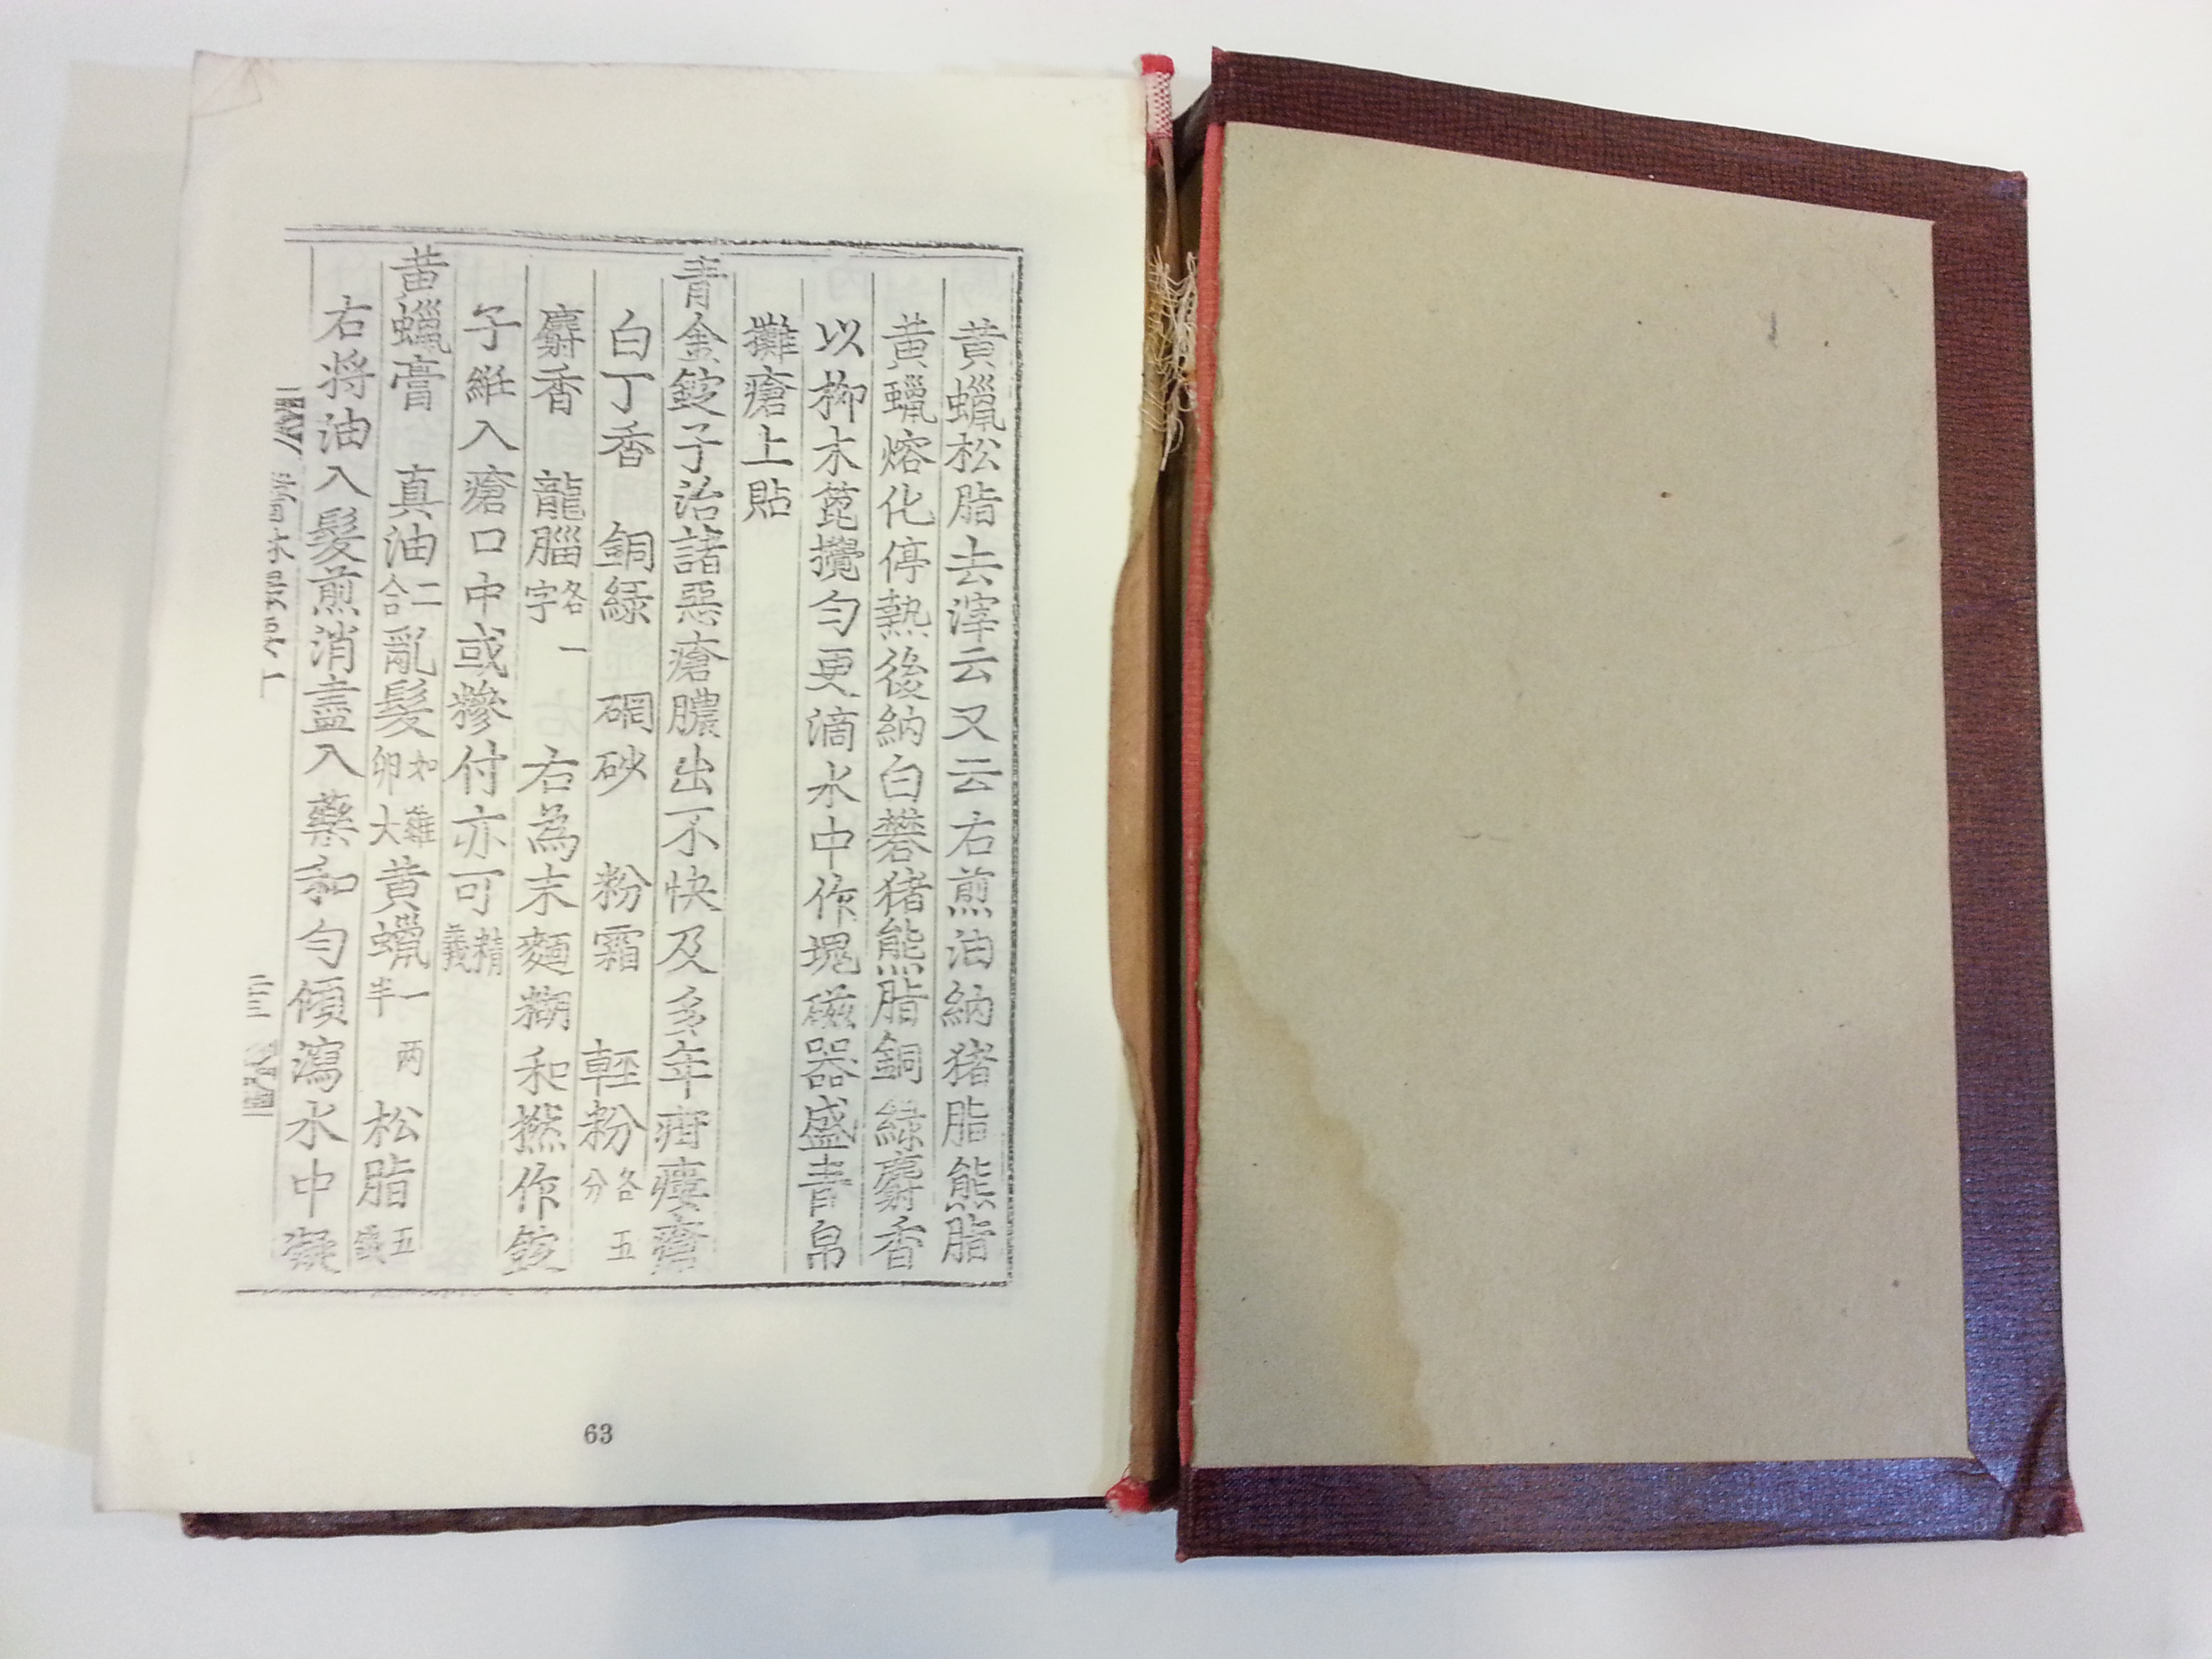 黄蠟松脂去滓云又云右煎油納猪脂熊脂
黄蠟熔化停熱後納白礬猪熊脂銅綠麝香
以柳木篦攪勻更滴水中作塊磁器盛青帛
攤瘡上貼
青金錠子治諸惡瘡膿出不快及多年疳瘻瘡
白丁香 銅綠 硇砂 粉霜 輕粉各五分
麝香 龍腦各一字 右為末麵糊和撚作錠
子維入瘡口中或糝付亦可精義
黄蠟膏 真油二合亂髮如雞卵大黄蠟一兩半 松脂五錢
右将油入髮煎消盡入藥和勻傾瀉水中凝
63